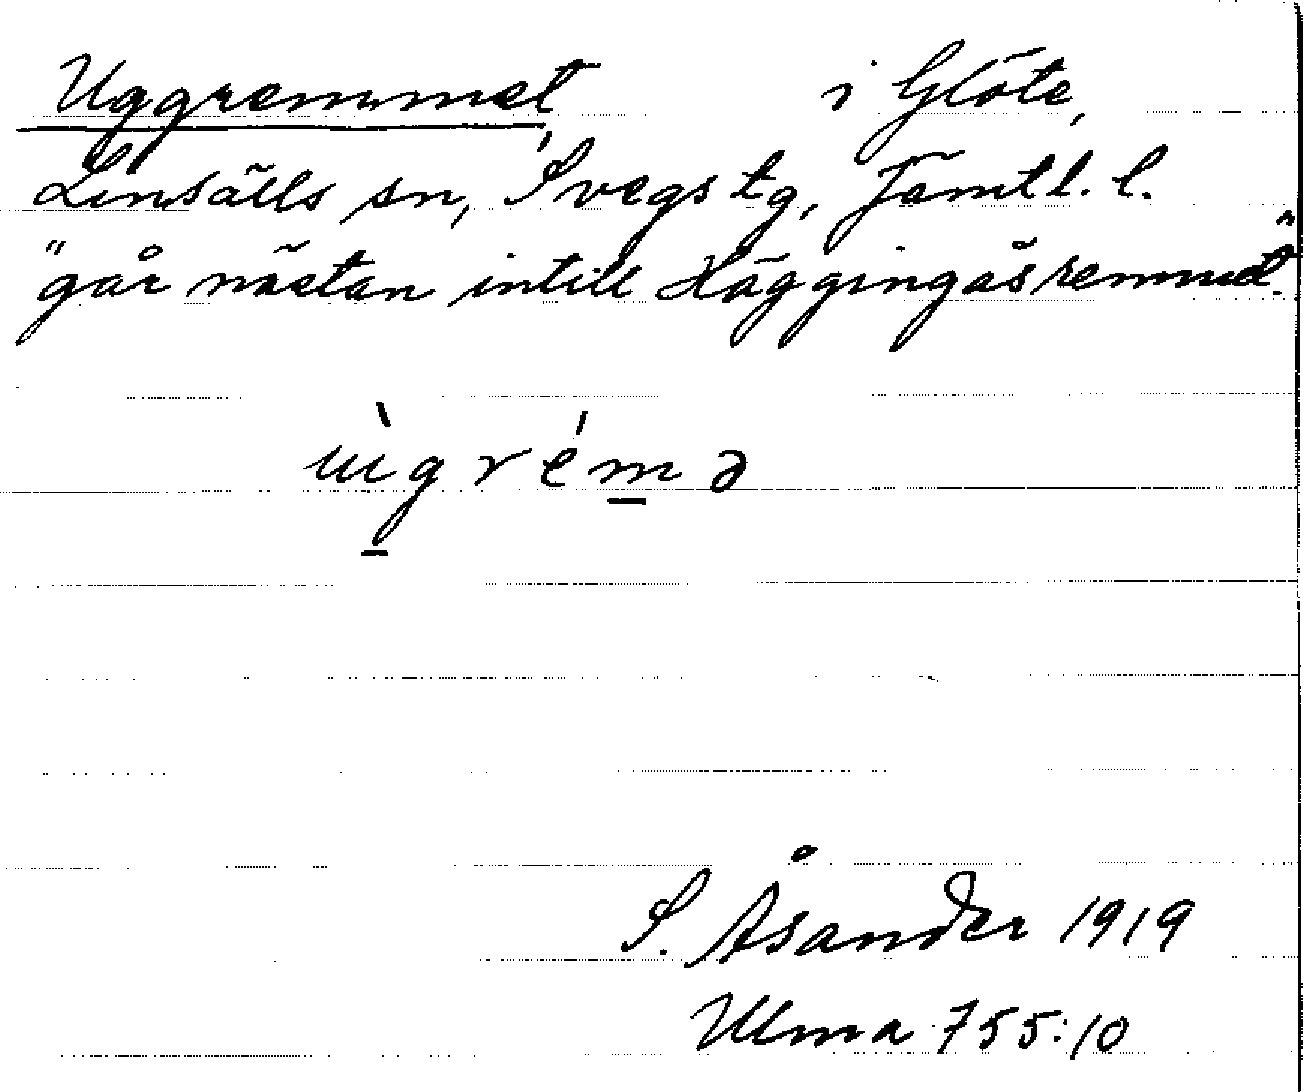 Uggremmet, i Glöte,
Linsälls sn, Svegs tg, Jämtl. l.
"går nästan intill Häggingåsremmet."
ùgréma
S. Åsander 1919
Ulma 755:10